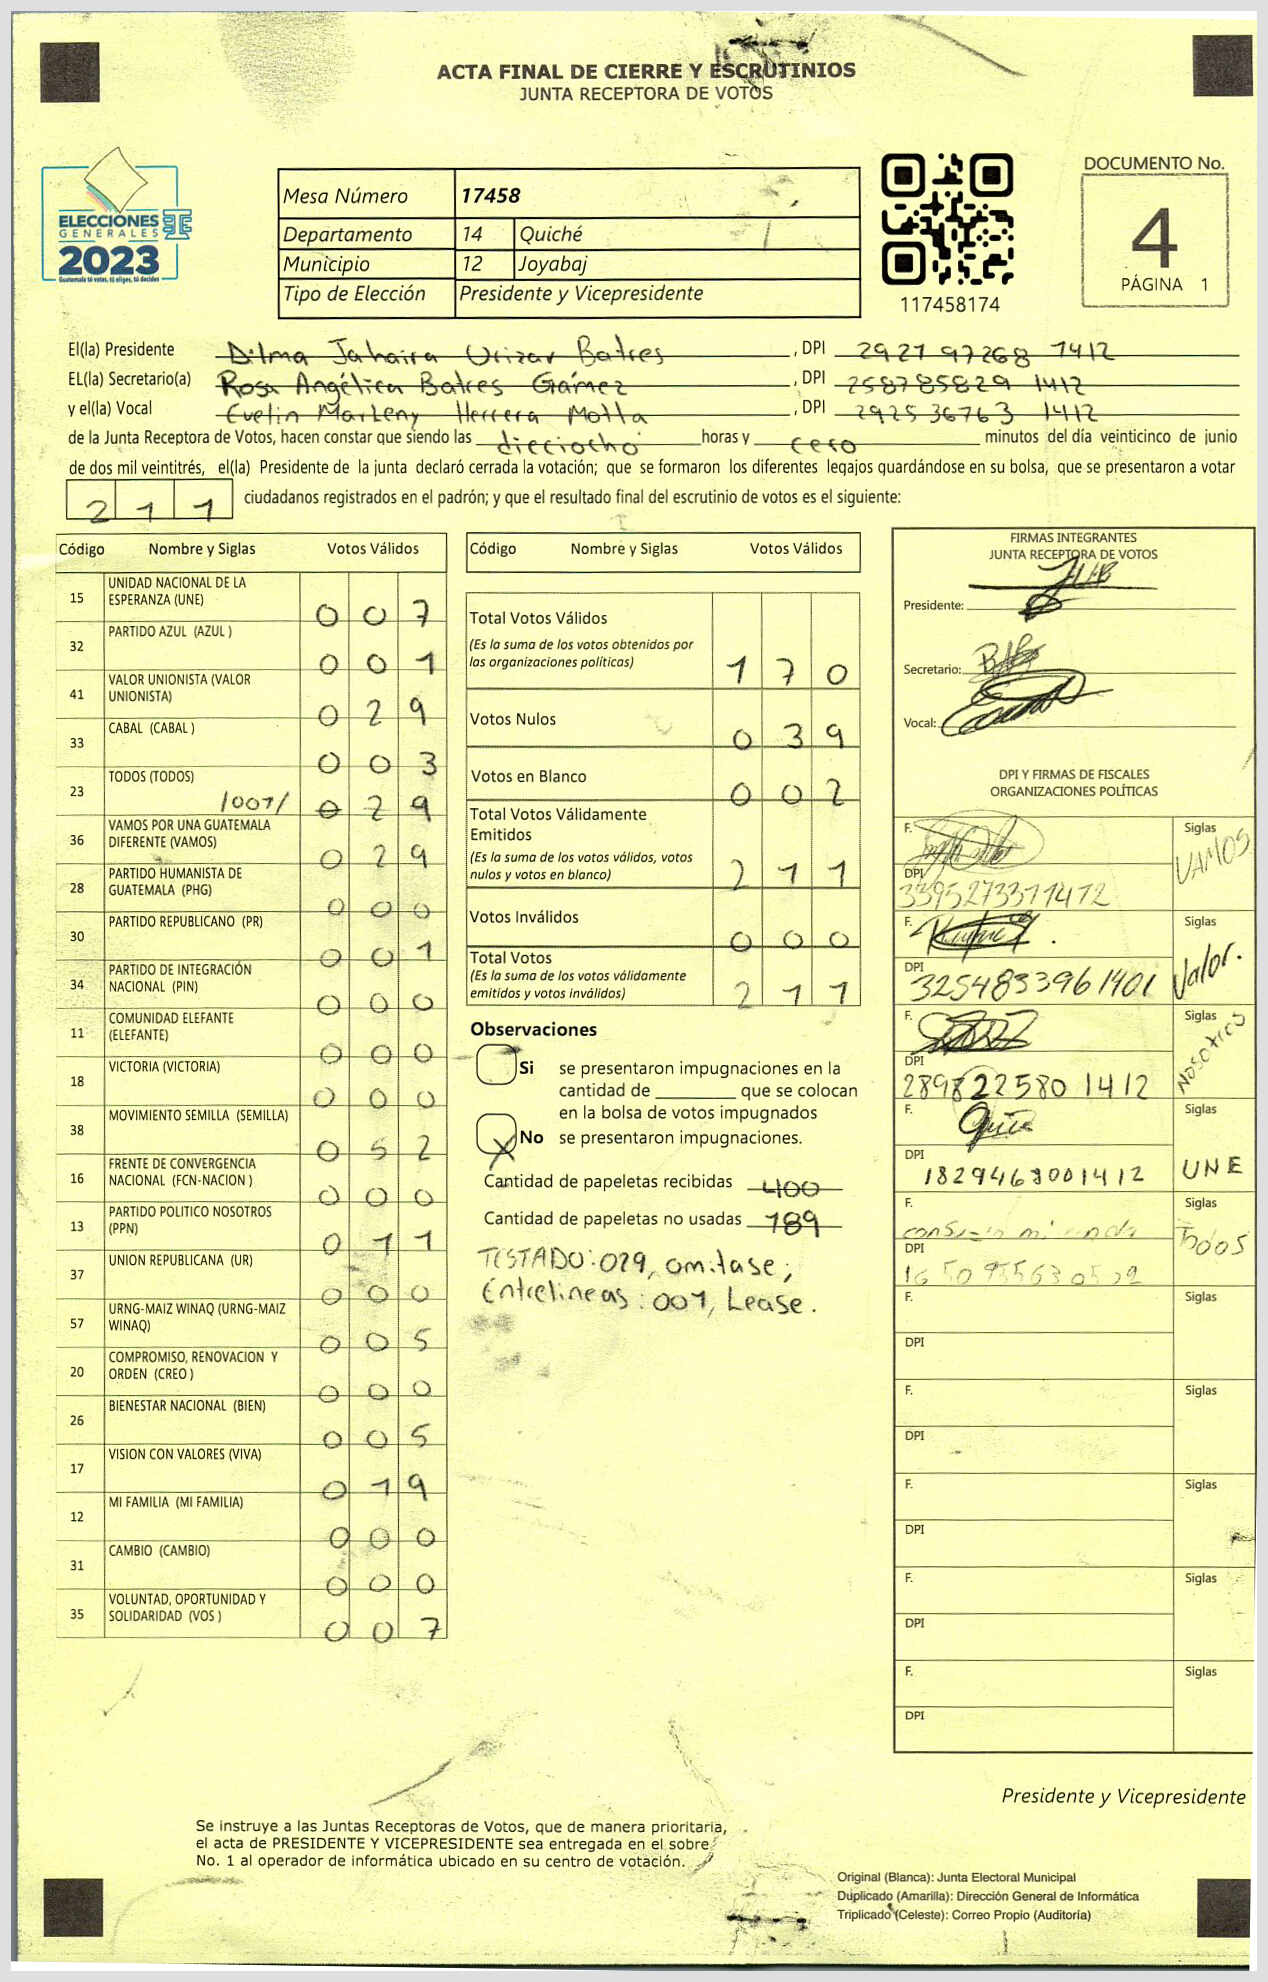 ACTA FINAL DE CIERRE Y ESCRUTINIOS
JUNTA RECEPTORA DE VOTOS
ELECCIONES
GENERALES
2023
Guatemala tú votas, tú eliges, tú decides
Mesa Número 17458
Departamento 14 Quiché
Municipio 12 Joyabaj
Tipo de Elección Presidente y Vicepresidente
117458174
DOCUMENTO No.
4
PÁGINA 1
El(la) Presidente Dilma Jahaira Urizar Batres, DPI 2921 97268 1412
EL(la) Secretario(a) Rosa Angélica Batres Gámez, DPI 258785829 1412
y el(la) Vocal Evelin Marleny Herrera Motta, DPI 2925 36763 1412
de la Junta Receptora de Votos, hacen constar que siendo las dieciocho horas y cero minutos del día veinticinco de junio
de dos mil veintitrés, el(la) Presidente de la junta declaró cerrada la votación; que se formaron los diferentes legajos guardándose en su bolsa, que se presentaron a votar
211 ciudadanos registrados en el padrón; y que el resultado final del escrutinio de votos es el siguiente:
Código Nombre y Siglas Votos Válidos
15 UNIDAD NACIONAL DE LA ESPERANZA (UNE) 007
32 PARTIDO AZUL (AZUL ) 001
41 VALOR UNIONISTA (VALOR UNIONISTA) 029
33 CABAL (CABAL ) 003
23 TODOS (TODOS) /001/ 029
36 VAMOS POR UNA GUATEMALA DIFERENTE (VAMOS) 029
28 PARTIDO HUMANISTA DE GUATEMALA (PHG) 000
30 PARTIDO REPUBLICANO (PR) 001
34 PARTIDO DE INTEGRACIÓN NACIONAL (PIN) 000
11 COMUNIDAD ELEFANTE (ELEFANTE) 000
18 VICTORIA (VICTORIA) 000
38 MOVIMIENTO SEMILLA (SEMILLA) 052
16 FRENTE DE CONVERGENCIA NACIONAL (FCN-NACION ) 000
13 PARTIDO POLITICO NOSOTROS (PPN) 011
37 UNION REPUBLICANA (UR) 000
57 URNG-MAIZ WINAQ (URNG-MAIZ WINAQ) 005
20 COMPROMISO, RENOVACION Y ORDEN (CREO ) 000
26 BIENESTAR NACIONAL (BIEN) 005
17 VISION CON VALORES (VIVA) 019
12 MI FAMILIA (MI FAMILIA) 000
31 CAMBIO (CAMBIO) 000
35 VOLUNTAD, OPORTUNIDAD Y SOLIDARIDAD (VOS ) 007
Código Nombre y Siglas Votos Válidos
Total Votos Válidos
(Es la suma de los votos obtenidos por las organizaciones políticas) 170
Votos Nulos 039
Votos en Blanco 002
Total Votos Válidamente Emitidos
(Es la suma de los votos válidos, votos nulos y votos en blanco) 211
Votos Inválidos 000
Total Votos
(Es la suma de los votos válidamente emitidos y votos inválidos) 211
Observaciones
Si se presentaron impugnaciones en la
cantidad de ________ que se colocan
en la bolsa de votos impugnados
X No se presentaron impugnaciones.
Cantidad de papeletas recibidas 400
Cantidad de papeletas no usadas 189
TESTADO: 029, omitase;
Entrelineas: 001, Lease.
FIRMAS INTEGRANTES
JUNTA RECEPTORA DE VOTOS
Presidente:
Secretario:
Vocal:
DPI Y FIRMAS DE FISCALES
ORGANIZACIONES POLÍTICAS
F. Siglas VAMOS
DPI 3395273371412
F. Siglas Valor.
DPI 3254833961401
F. Siglas NOSOTROS
DPI 289822580 1412
F. Siglas UNE
DPI 1829463001412
F. Siglas Todos
DPI
F. Siglas
DPI
F. Siglas
DPI
F. Siglas
DPI
F. Siglas
DPI
F. Siglas
DPI
Presidente y Vicepresidente
Se instruye a las Juntas Receptoras de Votos, que de manera prioritaria,
el acta de PRESIDENTE Y VICEPRESIDENTE sea entregada en el sobre
No. 1 al operador de informática ubicado en su centro de votación.
Original (Blanca): Junta Electoral Municipal
Duplicado (Amarilla): Dirección General de Informática
Triplicado (Celeste): Correo Propio (Auditoría)